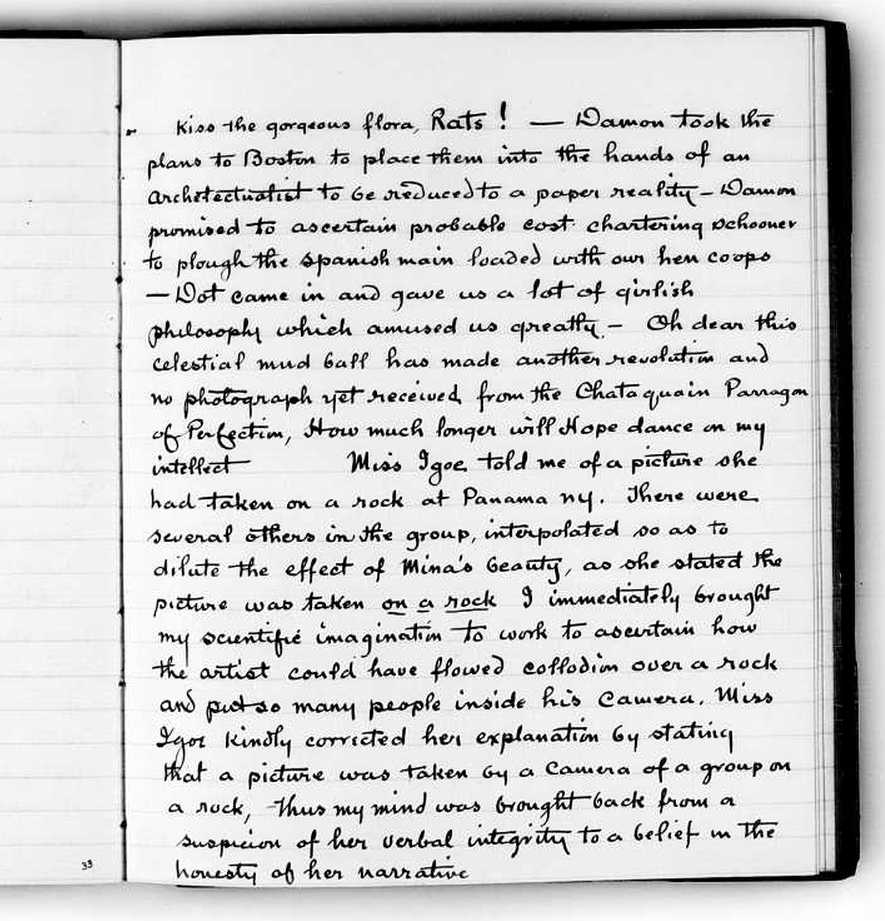 Kiss the gorgeous flora, Rats! — Damon took the
plans to Boston to place them into the hands of an
archetectualist to be reduced to a paper reality – Damon
promised to ascertain probable cost chartering schooner
to plough the spanish main loaded with our hen coops
— Dot came in and gave us a lot of girlish
philosophy which amused us greatly – Oh dear this
celestial mud ball has made another revolution and
no photograph yet received from the Chataquain Parragon
of Perfection, How much longer will Hope dance on my
intellect Miss Igoe told me of a picture she
had taken on a rock at Panama ny. There were
several others in the group, interpolated so as to
dilute the effect of Mina's beauty, as she stated the
picture was taken on a rock I immediately brought
my scientific imagination to work to ascertain how
the artist could have flowed collodion over a rock
and put so many people inside his camera. Miss
Igoe kindly corrected her explanation by stating
that a picture was taken by a camera of a group on
a rock, thus my mind was brought back from a
suspicion of her verbal integrity to a belief in the
honesty of her narrative
33